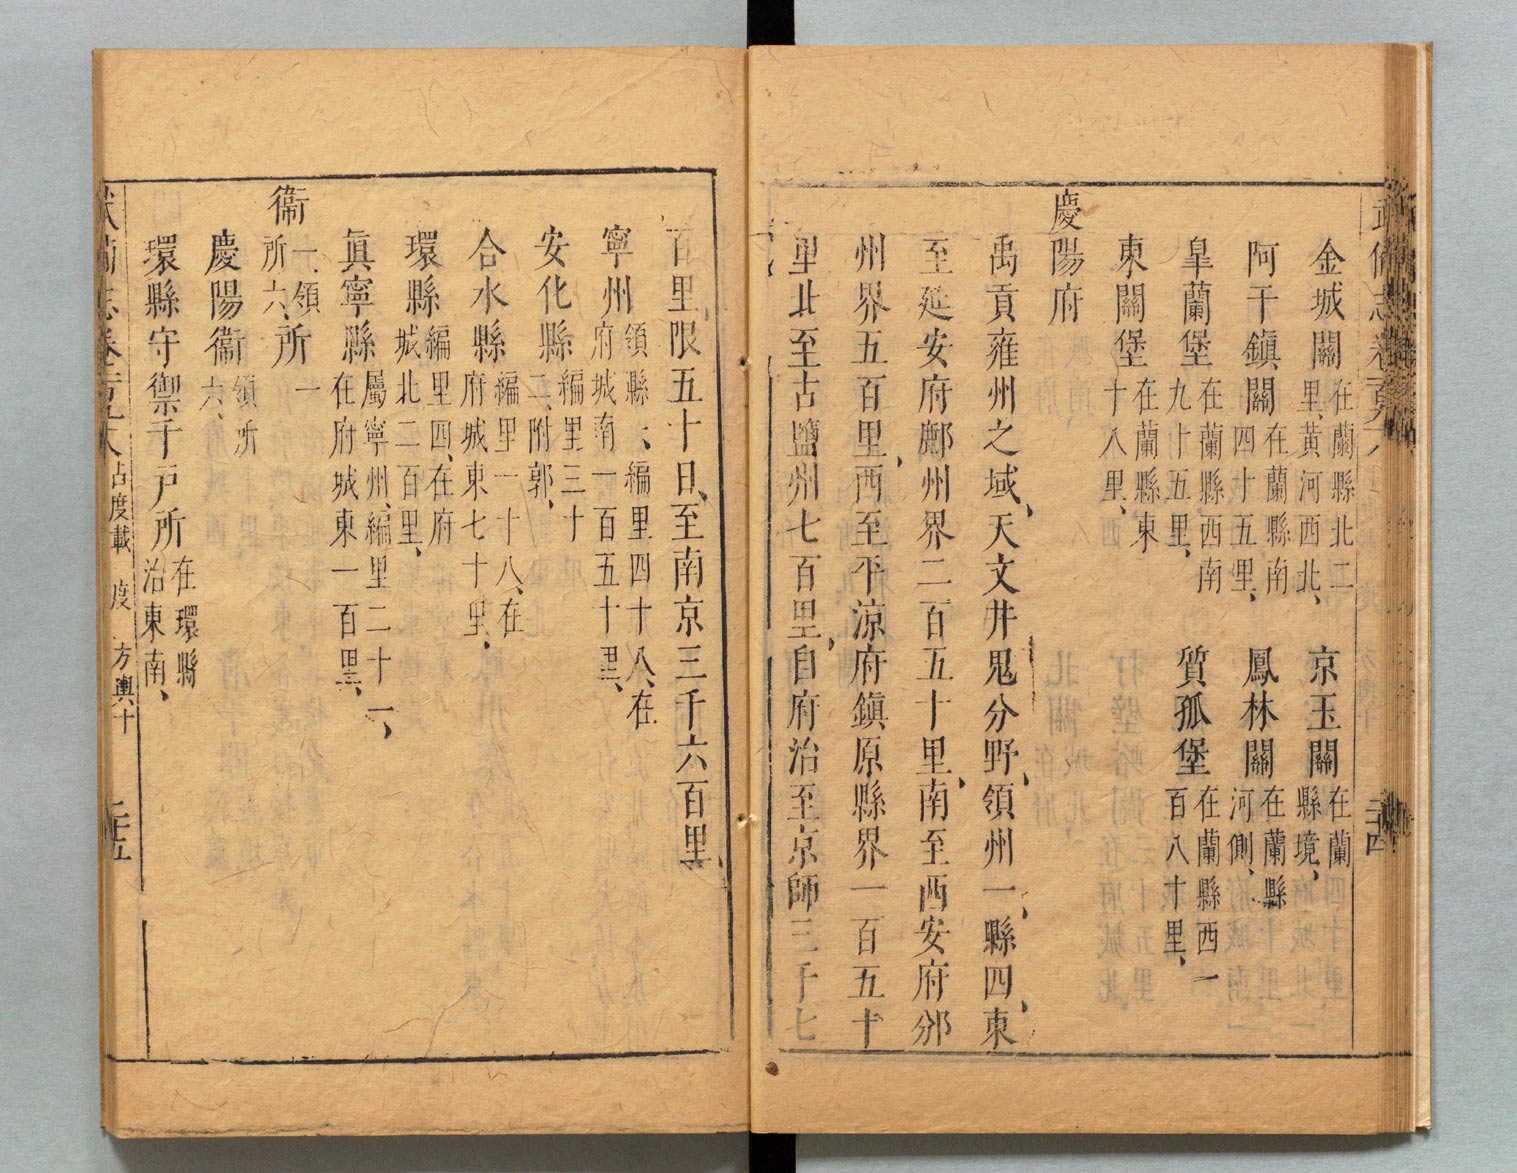 金城關在蘭縣北二里、黃河西北、 京玉關在蘭縣境、
阿干鎮關在蘭縣南四十五里、 鳳林關在蘭縣河側、
皐蘭堡在蘭縣西南九十五里、 質孤堡在蘭縣西一百八十里、
東關堡在蘭縣東十八里、
慶陽府
禹貢雍州之域、天文井鬼分野、領州一、縣四、東
至延安府鄜州界二百五十里、南至西安府邠
州界五百里、西至平涼府鎮原縣界一百五十
里北至古鹽州七百里、自府治至京師三千七
百里、限五十日、至南京三千六百里、
寧州領縣一、編里四十八、在府城南一百五十里、
安化縣編里三十二、附郭、
合水縣編里一十八、在府城東七十里、
環縣編里四、在府城北二百里、
眞寧縣屬寧州、編里二十一、在府城東一百里、
衞一、領所六、所一
慶陽衞領所六、
環縣守禦千戶所在環縣治東南、
占度載 度 方輿十 二十五